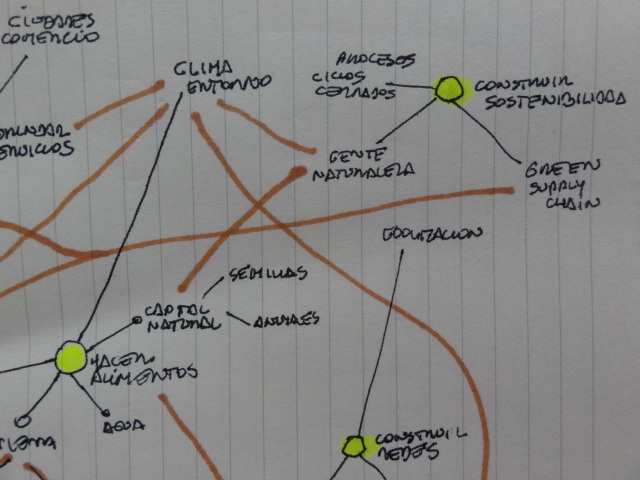 CIUDADES
COMERCIO
CLIMA
ENTORNO
PROCESOS
CICLOS
CERRADOS
CONSTRUIR
SOSTENIBILIDAD
GENTE
NATURALEZA
GREEN
SUPPLY
CHAIN
SEMILLAS
CAPITAL
NATURAL
ANIMALES
HACER
ALIMENTOS
AGUA
CONSTRUIR
REDES